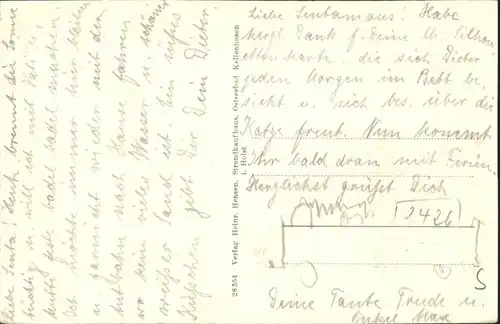 Liebe Sentamaus! Habe
herzl. Dank f. Deine lb. Silhou-
ettenkarte die sich Dieter
jeden Morgen im Bett be-
sieht u. sich bes. über die
Katze freut. Nun kommt
Ihr bald dran mit Ferien.
Herzlichst grüßt Dich
2426
Deine Tante Trude u.
Onkel Max
28 554 Verlag Heinr. Hensen, Strandkaufhaus, Ostseebad Kellenhusen
i. Holst.
Liebe Senta! Heute brennt die Sonne
tüchtig u. will ich mit Vati u.
Mutti feste badel badel machen.
Ich möchte immer hier bleiben
u. garnicht wieder mit der
Autobahn nach Hause fahren
wo kein vieles Wasser u. schöner
weißer Sand ist. Ein süßes
Küßchen gibt Dir Dein Dieter.